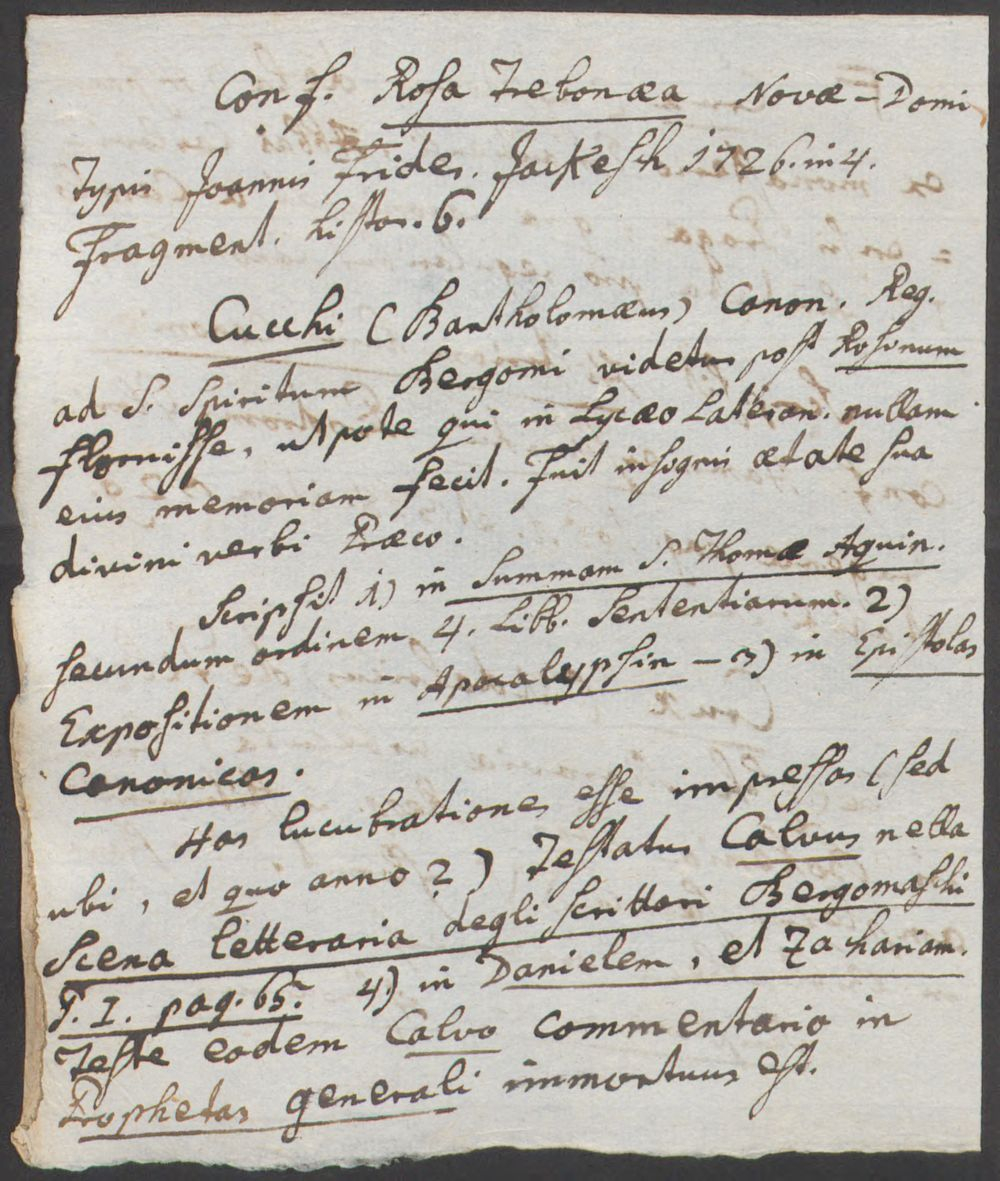 Conf. Rosa Trebonæa Novæ-Domi
Typis Joannis Frider. Jackesch 1726. in 4.
Fragment. histor. 6.
Cucchi (Bartholomæus) Canon. Reg.
ad S. Spiritum Bergomi videtur post Rosinum
floruisse, utpote qui in Lycæo Lateran. nullam
eius memoriam fecit. Fuit insignis ætate sua
divini verbi Præco.
Scripsit 1) in Summam S. Thomæ Aquin.
secundum ordinem 4. Libb. Sententiarum. 2)
Expositionem in Apocalypsin - 3) in Epistolas
Canonicas.
Has lucubrationes esse impressas (sed
ubi, et quo anno?) Testatur Calvus nella
Scena letteraria degli scrittori Bergomaschi
P. I. pag. 65. 4.) in Danielem, et Zachariam.
Teste eodem Calvo commentario in
Prophetas generali immortuus est.